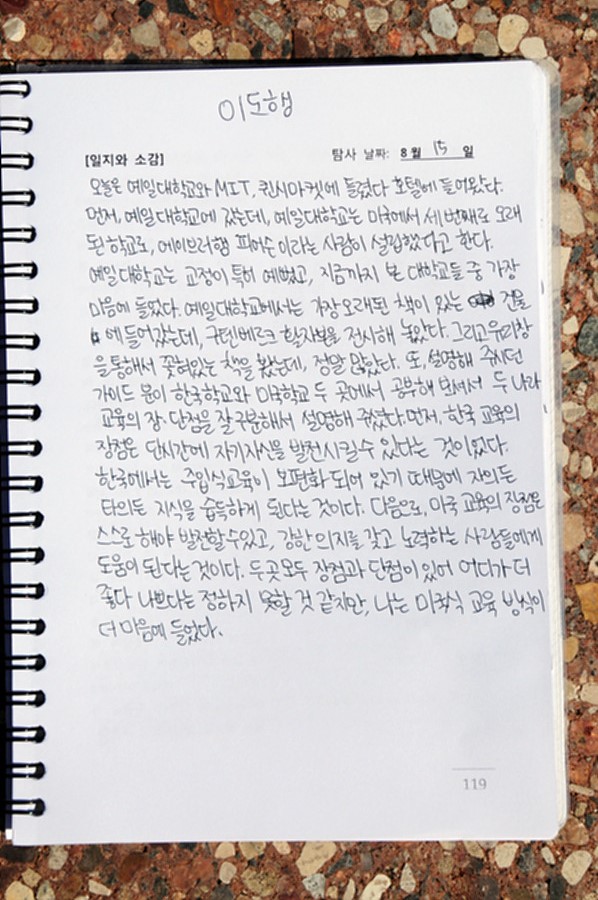 이도행
[일지와 소감]
탐사 날짜: 8월 15 일
오늘은 예일대학교와 MIT, 퀸시마켓에 들렸다 호텔에 들어왔다.
먼저, 예일대학교에 갔는데, 예일대학교는 미국에서 세 번째로 오래
된 학교로, 에이브러햄 피어슨 이라는 사람이 설립했다고 한다.
예일대학교는 교정이 특히 예뻤고, 지금까지 본 대학교들 중 가장
마음에 들었다. 예일대학교에서는 가장 오래된 책이 있는 건물
에 들어갔는데, 구텐베르크 활자본을 전시해 놓았다. 그리고 유리창
을 통해서 꽂혀있는 책을 봤는데, 정말 많았다. 또, 설명해 주시던
가이드 분이 한국학교와 미국학교 두 곳에서 공부해 보셔서 두 나라
교육의 장·단점을 잘 구분해서 설명해 주셨다. 먼저, 한국 교육의
장점은 단시간에 자기지식을 발전시킬수 있다는 것이었다.
한국에서는 주입식교육이 보편화 되어 있기 때문에 자의든
타의든 지식을 습득하게 된다는 것이다. 다음으로, 미국 교육의 장점은
스스로 해야 발전할수있고, 강한 의지를 갖고 노력하는 사람들에게
도움이 된다는 것이다. 두곳모두 장점과 단점이 있어 어디가 더
좋다 나쁘다는 정하지 못할 것 같지만, 나는 미국식 교육 방식이
더 마음에 들었다.
119